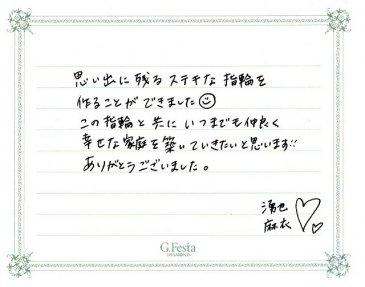 思い出に残るステキな指輪を
作ることができました
この指輪と共に いつまでも仲良く
幸せな家庭を築いていきたいと思います!!
ありがとうございました。
湧也
麻衣
G.Festa
DIAMOND